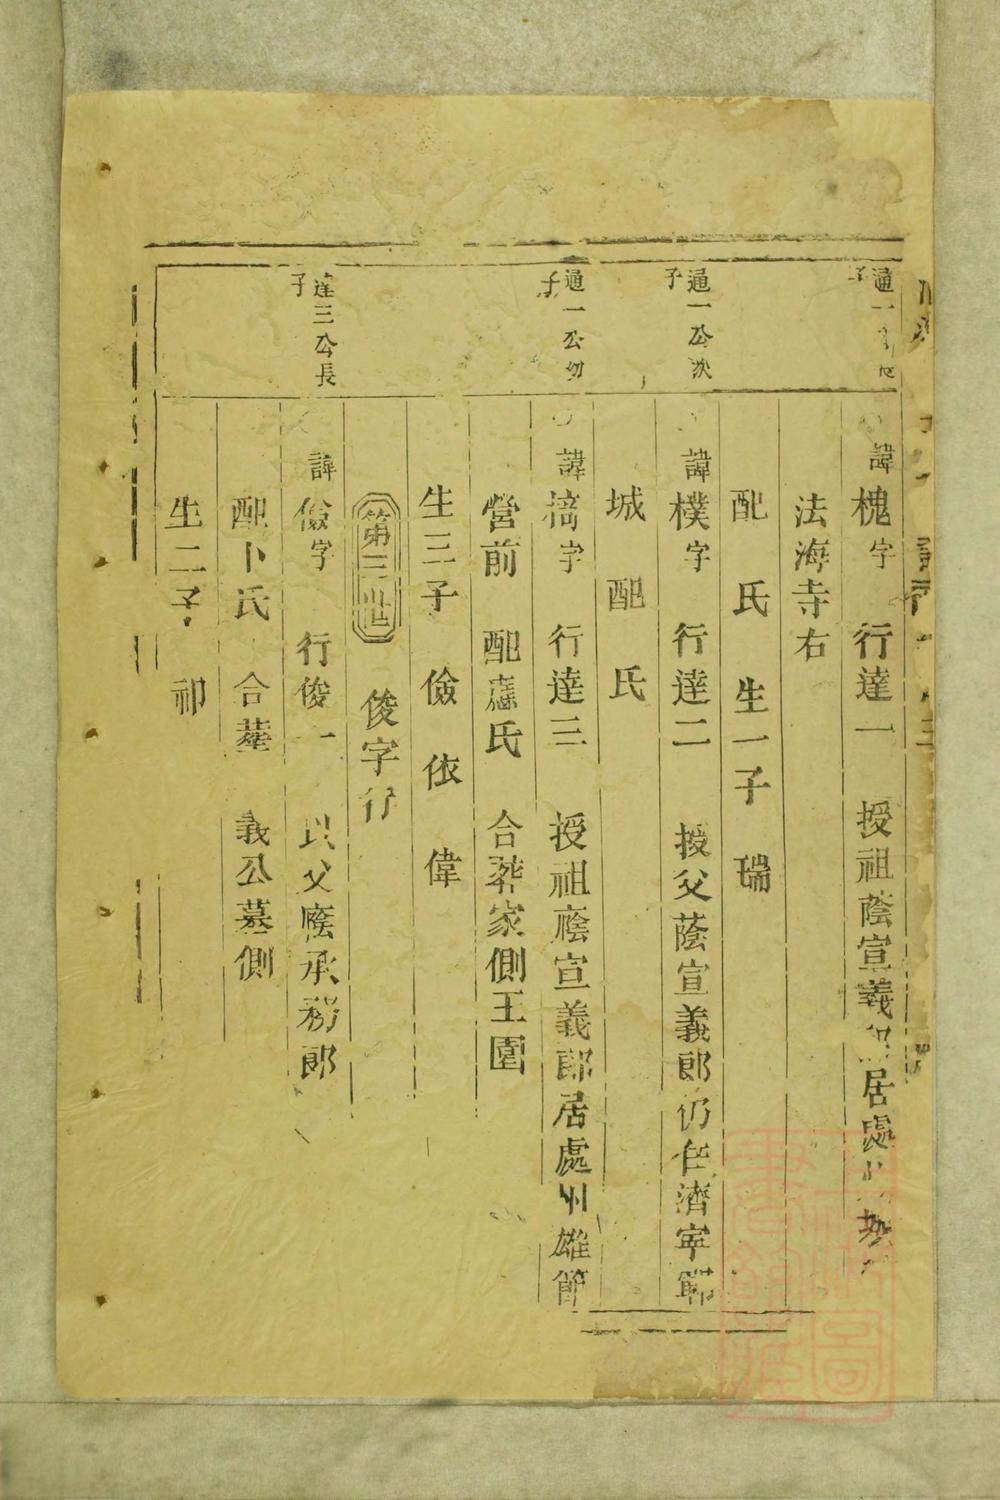 通一公
子
諱槐字 行達一 授祖蔭宣義 居處
法海寺右
配 氏 生一子 瑞
通一公次
子
諱樸字 行達二 授父蔭宣義郎仍 濟寧鄆
城 配 氏
通一公幼
子
諱 字 行達三 授祖蔭宣義郎居處州雄節
營前 配 氏 合葬家側王園
生三子 儉 依 偉
第三世 俊字行
達三公長
子
諱儉字 行俊一 以父廕承務郎
配卜氏 合葬 義公墓側
生二子 祁